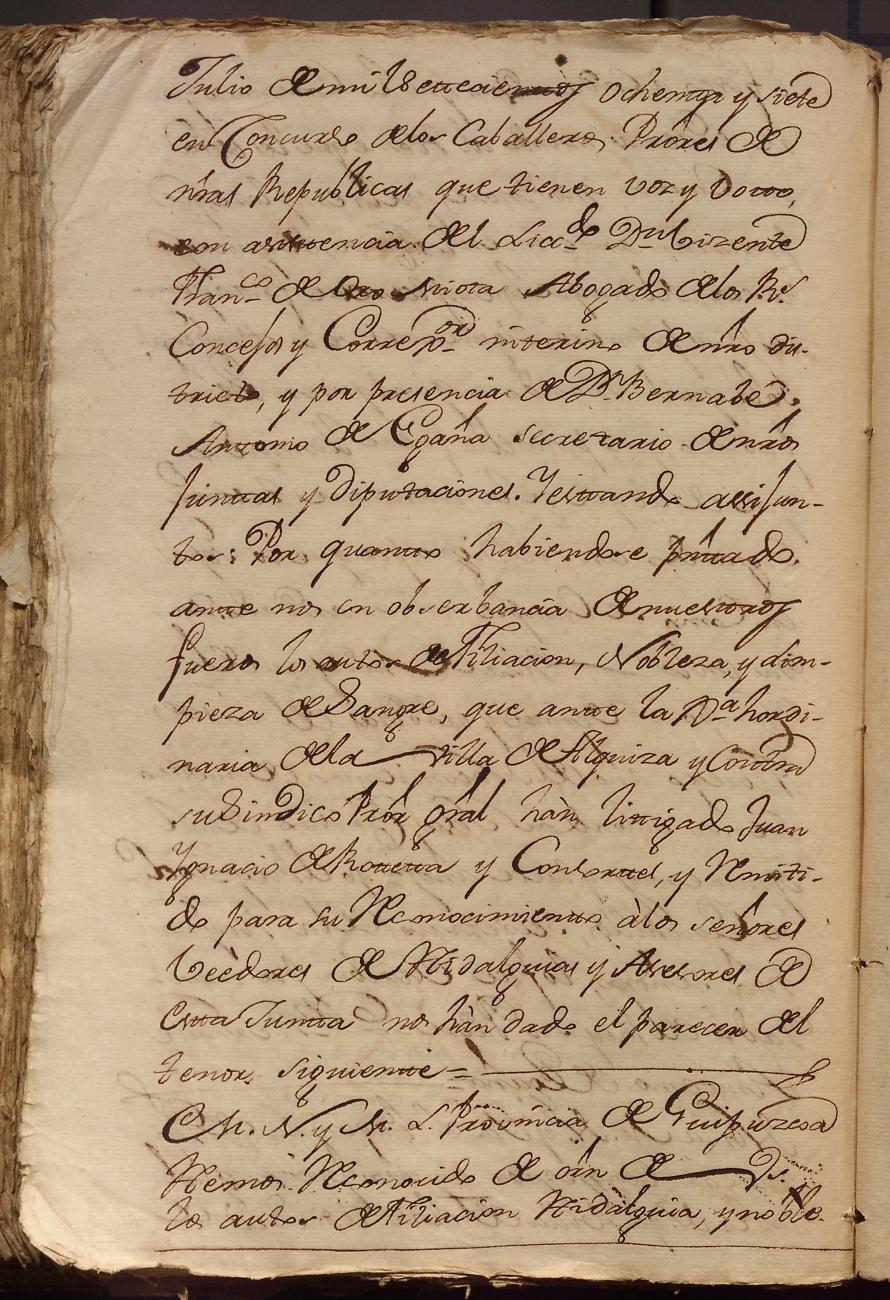 Julio de mil settecientos ochenta y siete
en Concurso delos Caballeros Prōres de
nr̄as Republicas que tienen voz y votto,
con asistencia del Liccdo Dn Vizente
Franco de Oro Miota Abogado delos Rs
Consejos y Correxor interino de nr̄o dis-
tricto, y por presencia de Dn Bernabe
Antonio de Egaña secretario de nr̄as
Junttas y Diputaciones. Y estando assi jun-
tos: Por quanto habiendose pr̄ntado
antte nos en obserbancia de nuestros
fueros los autos de Filiacion, Nobleza, y Lim-
pieza de Sangre, que antte la Jta hordi-
naria dela Villa de Alquiza y Contra
su Sindico Prōr gr̄al hàn littigado Juan
Ygnacio de Rotteta y Consorttes, y Remiti-
do para su Reconocimiento àlos señores
Veedores de Hidalguias y Asesores de
Esta Juntta nos hàn dado el parecer del
tenor siguiente =
M. N. y M. L. Provincia de Guipuzcoa
Hemos Reconocido de orn̄ de Vs.
los autos de Filiacion Hidalguia, y noble-